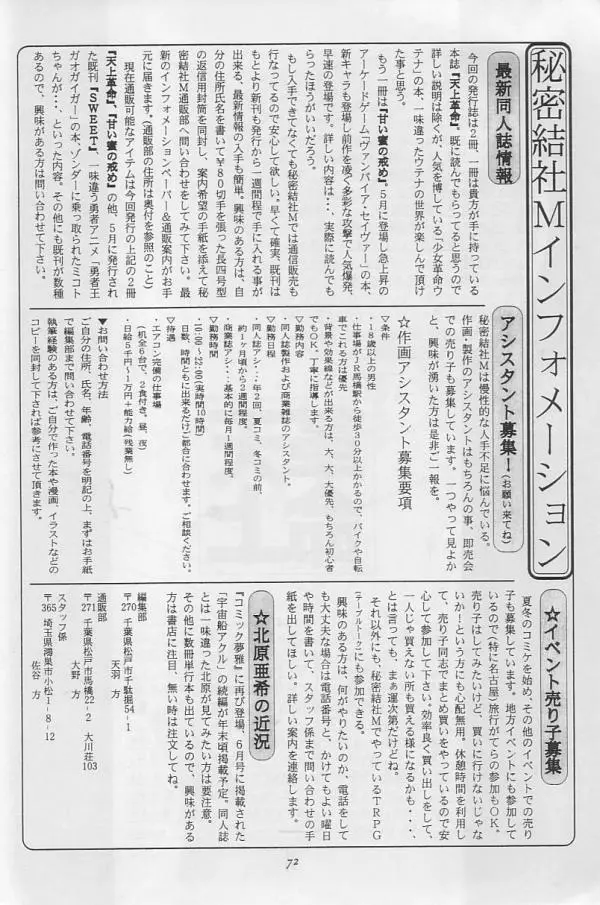 秘密結社Mインフォメーション
最新同人誌情報
今回の発行誌は2冊、一冊は貴方が手に持っている
本誌『天上革命』。既に読んでもらってると思うので
詳しい説明は除くが、人気を博している「少女革命ウ
テナ」の本、一味違ったウテナの世界が楽しんで頂け
たと思う。
もう一冊は『甘い蜜の戒め』。5月に登場し急上昇の
アーケードゲーム「ヴァンパイア・セイヴァー」の本、
新キャラも登場し前作を凌ぐ多彩な攻撃で人気爆発、
早速の登場です。詳しい内容は‥、実際に読んでも
らったほうがいいだろう。
もし入手できてなくても秘密結社Mでは通信販売も
行なってるので安心して欲しい。早くて確実、既刊は
もとより新刊も発行から一週間程で手に入れる事が
出来る、最新情報の入手も簡単。興味のある方は、自
分の住所氏名を書いて¥80切手を張った長四号型
の返信用封筒を同封し、案内希望の手紙を添えて秘
密結社M通販部へ問い合わせをしてみて下さい。最
新のインフォメーションペーパー&通販案内がお手
元に届きます。(通販部の住所は奥付を参照のこと)
現在通販可能なアイテムは今回発行の上記の2冊
『天上革命』、『甘い蜜の戒め』の他、5月に発行され
た既刊『SWEET』、一味違う勇者アニメ「勇者王
ガオガイガー」の本。ゾンダーに乗っ取られたミコト
ちゃんが‥、といった内容。その他にも既刊が数種
あるので、興味がある方は問い合わせて下さい。
アシスタント募集!(お願い来てね)
秘密結社Mは慢性的な人手不足に悩んでいる。
作画・製作のアシスタントはもちろんの事、即売会
での売り子も募集しています。一つやって見よか
と、興味が湧いた方は是非ご一報を。
☆作画アシスタント募集要項
▼条件
・18歳以上の男性
・仕事場がJR馬橋駅から徒歩30分以上かかるので、バイクや自転
車でこれる方は優先
・背景や効果線などが出来る方は、大、大、大優先、もちろん初心者
でもOK、丁寧に指導します。
▼勤務内容
・同人誌製作および商業雑誌のアシスタント。
▼勤務日程
・同人誌アシ‥年2回、夏コミ、冬コミの前、
約1ヶ月頃から2週間程度。
・商業誌アシ‥基本的に毎月1週間程度。
▼勤務時間
・10:00〜22:00(実時間10時間)
日数、時間ともに出来るだけご都合に合わせます。ご相談ください。
▼待遇
・エアコン完備の仕事場
(机全6台で、2食付き。昼、夜)
・日給5千円〜1万円+能力給(残業無し)
▼お問い合わせ方法
ご自分の住所、氏名、年齢、電話番号を明記の上、まずはお手紙
で編集部まで問い合わせて下さい。
執筆経験のある方は、ご自分で作った本や漫画、イラストなどの
コピーを同封して下されば参考にさせて頂きます。
☆イベント売り子募集
夏冬のコミケを始め、その他のイベントでの売り
子も募集しています。地方イベントにも参加して
いるので(特に名古屋)旅行がてらの参加もOK。
売り子はしてみたいけど、買いに行けないじゃな
いか!という方にも心配無用。休憩時間を利用し
て、売り子同志でまとめ買いをやっているので安
心して参加して下さい。効率良く買い出しをして、
一人じゃ買えない所も買える様になるかも‥‥、
とは言っても、まぁ運次第だけどね。
それ以外にも、秘密結社MでやっているTRPG
(テーブルトーク)にも参加できる。
興味のある方は、何がやりたいのか、電話をして
も大丈夫な場合は電話番号と、かけてもよい曜日
や時間を書いて、スタッフ係まで問い合わせの手
紙を出してほしい。詳しい案内を連絡します。
☆北原亜希の近況
『コミック夢雅』に再び登場、6月号に掲載された
「宇宙船アクル」の続編が年末頃掲載予定。同人誌
とは一味違った北原が見てみたい方は要注意。
その他に数冊単行本も出ているので、興味がある
方は書店に注目、無い時は注文してね。
編集部
〒270 千葉県松戸市千駄堀54-1
天羽 方
通販部
〒271 千葉県松戸市馬橋22-2 大川荘103
大野 方
スタッフ係
〒365 埼玉県鴻巣市小松1-8-12
佐谷 方
72